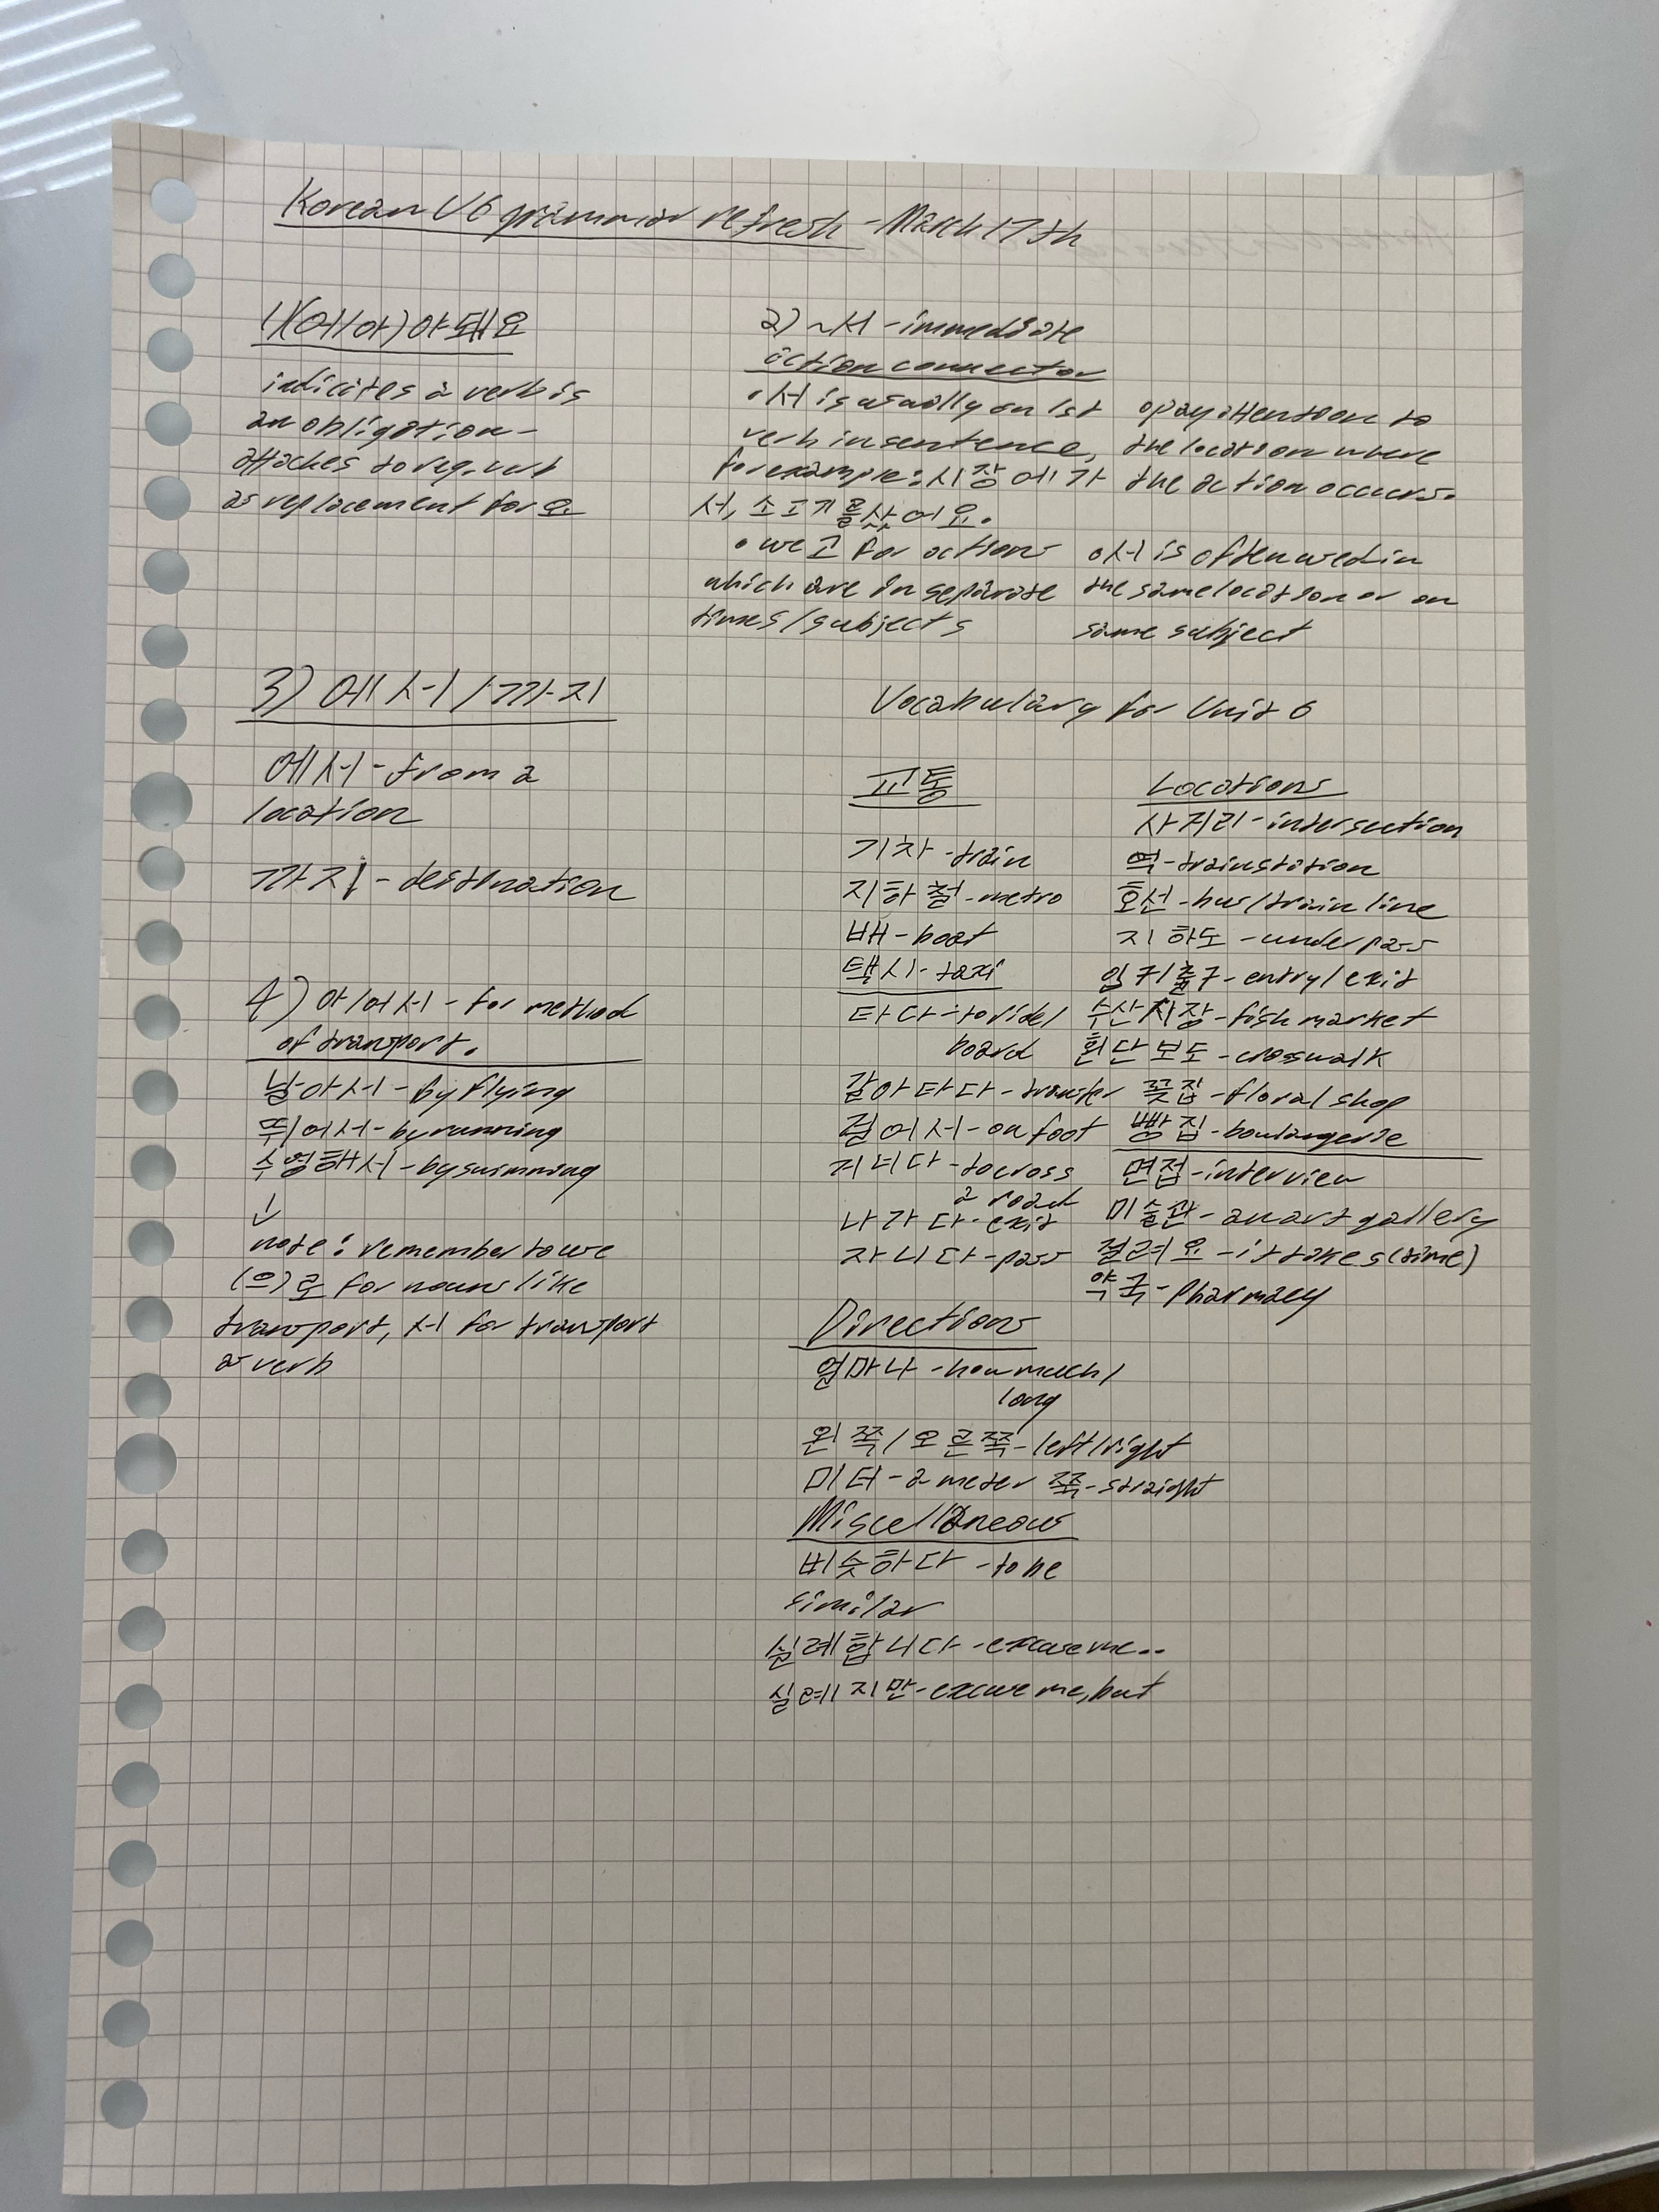 Korean U6 grammar refresh - March 17th
1)(어/아)야돼요
indicates a verb is
an obligation -
attaches to reg. verb
as replacement for 요
2) ~서 - immediate
action connector
• 서 is usually on 1st
verb in sentence,
for example: 시장에가
서, 소고기를샀어요.
• use 고 for actions
which are in separate
times/subjects
o pay attention to
the location where
the action occurs.
o 서 is often used in
the same location or on
same subject
3) 에서/까지
에서 - from a
location
까지 - destination
4) 아/어서 - for method
of transport.
날아서 - by flying
뛰어서 - by running
수영해서 - by swimming
↓
note: remember to use
(으)로 for nouns like
transport, 서 for transport
as verb
Vocabulary for Unit 6
교통
기차 - train
지하철 - metro
배 - boat
택시 - taxi
타다 - to ride/
board
갈아타다 - transfer
걸어서 - on foot
거너다 - to cross
a road
나가다 - exit
자나다 - pass
Locations
사거리 - intersection
역 - train station
호선 - bus/train line
지하도 - underpass
입구/출구 - entry/exit
수산시장 - fish market
횐단보도 - crosswalk
꽃집 - floral shop
빵집 - boulangerie
면접 - interview
미술관 - an art gallery
걸려요 - it takes (time)
약국 - Pharmacy
Directions
얼마나 - how much/
long
왼쪽/오른쪽 - left/right
미터 - a meter 쭉 - straight
Miscellaneous
비슷하다 - to be
similar
실례합니다 - excuse me..
실례지만 - excuse me, but